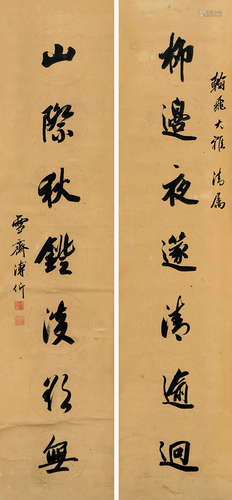 翰飛大雅 清属
柳邊夜篴清逾迥
山際秋鐙淡欲無
雪齋溥伒